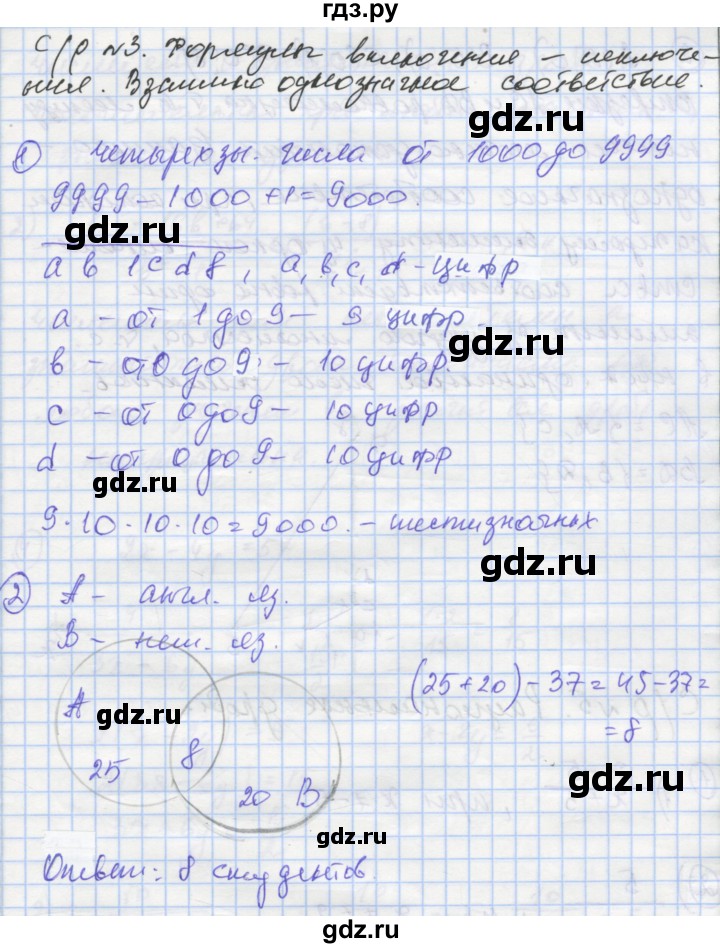 гдз.ру
С/р №3. Формулы включения – исключе-
ния. Взаимно однозначное соответствие.
gdz.ru
① четырехзн. числа от 1000 до 9999
9999 – 1000 + 1 = 9000.
gdz.ru
a b 1 c d 8, a, b, c, d – цифр
a – от 1 до 9 – 9 цифр.
gdz.ru
b – от 0 до 9 – 10 цифр.
c – от 0 до 9 – 10 цифр
d – от 0 до 9 – 10 цифр
gdz.ru
9 · 10 · 10 · 10 = 9000. – шестизначных
gdz.ru
② A – англ. яз.
B – нем. яз.
(25 + 20) – 37 = 45 – 37 =
= 8
A
gdz.ru
25 8
20 B
gdz.ru
Ответ: 8 студентов.
gdz.ru